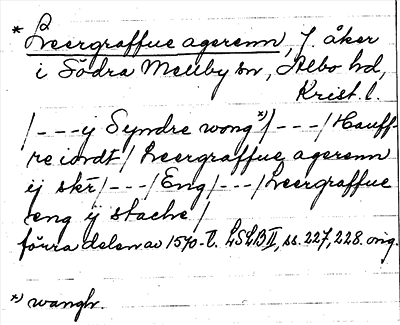 * Leergraffue agerenn, f. åker
i Södra Mellby sn, Albo hd,
Krist. l.
/---ij Syndre wong*)/---/Hauff-
re iordt/ Leergraffue agerenn
ij skr/---/Eng/---/Leergraffue
eng ij stache/
förra delen av 1570-t. LSLB II, ss. 227, 228. orig.
*) wangh.